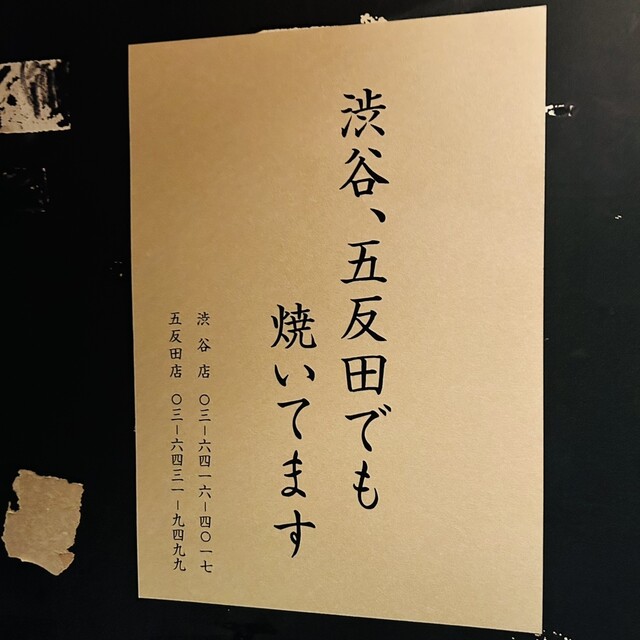 渋谷、五反田でも
焼いてます
渋谷店 〇三ー六四一六ー四〇一七
五反田店 〇三ー六四三一ー九四九九